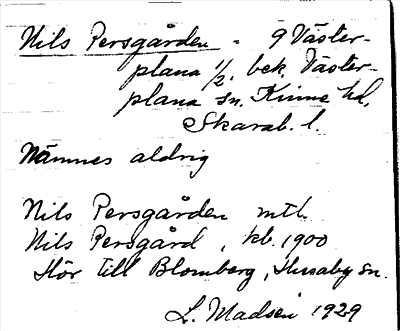 Nils Persgården - 9 Väster-
plana 1/2. bek. Väster-
plana sn. Kinne hd.
Skarab. l.
Nämnes aldrig
Nils Persgården mtl.
Nils Persgård, kb. 1900
Hör till Blomberg, Husaby sn.
L. Madsen 1929